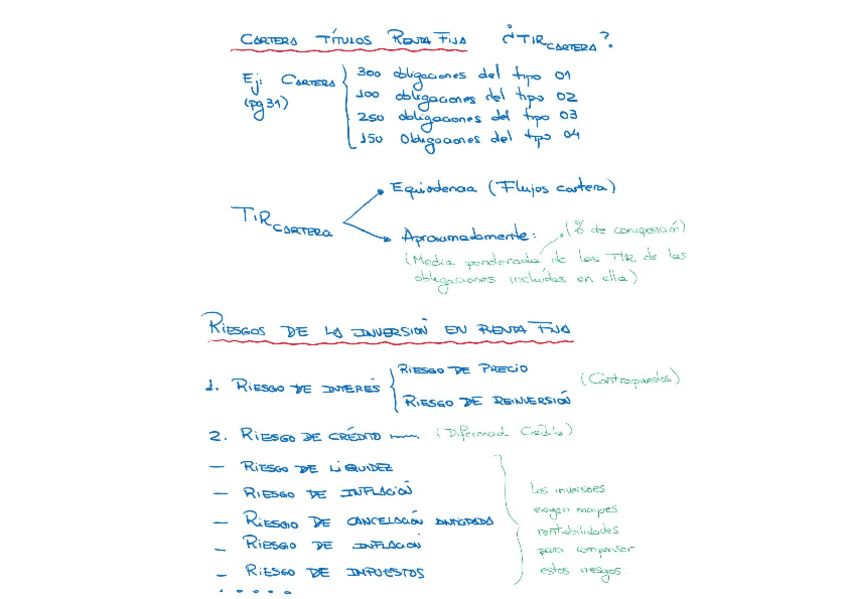 CARTERA TÍTULOS RENTA FIJA ¿TIR CARTERA?
Ej: CARTERA
(pg 31)
300 obligaciones del tipo 01
100 obligaciones del tipo 02
250 obligaciones del tipo 03
150 Obligaciones del tipo 04
TIR CARTERA
Equivalencia (Flujos cartera)
Aproximadamente: (% de composición)
(Media ponderada de las TIR de las
obligaciones incluidas en ella)
RIESGOS DE LA INVERSIÓN EN RENTA FIJA
1. RIESGO DE INTERÉS
RIESGO DE PRECIO
RIESGO DE REINVERSIÓN
(Contrapuestos)
2. RIESGO DE CRÉDITO (Diferencial Crédito)
— RIESGO DE LIQUIDEZ
— RIESGO DE INFLACIÓN
— RIESGO DE CANCELACIÓN ANTICIPADA
— RIESGO DE INFLACIÓN
— RIESGO DE IMPUESTOS
.....
Los inversores
exigen mayores
rentabilidades
para compensar
estos riesgos